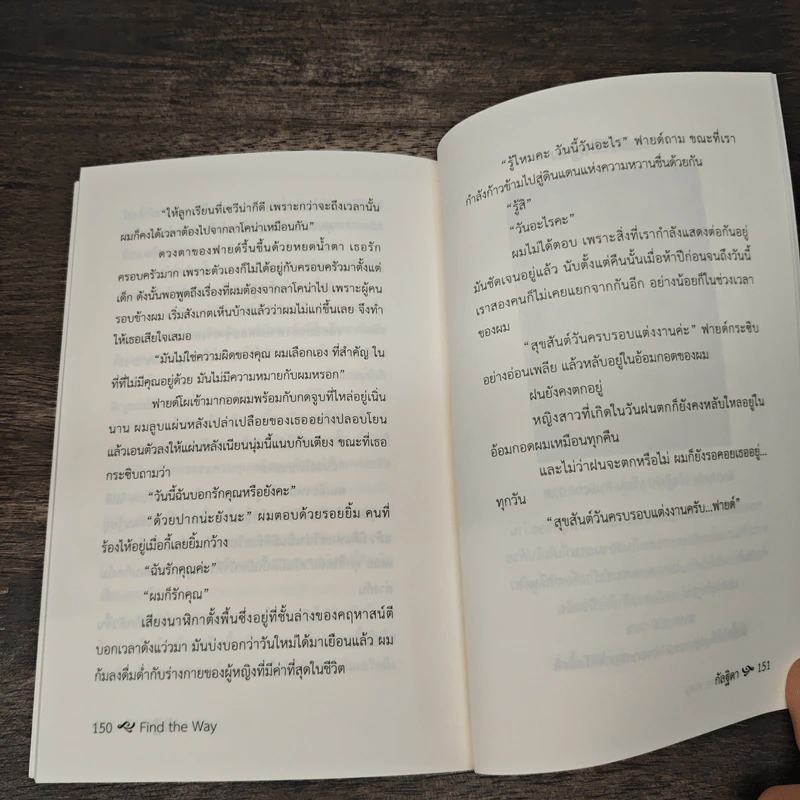 “ให้ลูกเรียนที่เซวีน่าก็ดี เพราะกว่าจะถึงเวลานั้น
ผมก็คงได้เวลาต้องไปจากลาโคน่าเหมือนกัน”
ดวงตาของฟายด์รื้นขึ้นด้วยหยดน้ำตา เธอรัก
ครอบครัวมาก เพราะตัวเองก็ไม่ได้อยู่กับครอบครัวมาตั้งแต่
เด็ก ดังนั้นพอพูดถึงเรื่องที่ผมต้องจากลาโคน่าไป เพราะผู้คน
รอบข้างผม เริ่มสังเกตเห็นบ้างแล้วว่าผมไม่แก่ขึ้นเลย จึงทำ
ให้เธอเสียใจเสมอ
“มันไม่ใช่ความผิดของคุณ ผมเลือกเอง ที่สำคัญ ใน
ที่ที่ไม่มีคุณอยู่ด้วย มันไม่มีความหมายกับผมหรอก”
ฟายด์โผเข้ามากอดผมพร้อมกับกดจูบที่ไหล่อยู่เนิ่น
นาน ผมลูบแผ่นหลังเปล่าเปลือยของเธออย่างปลอบโยน
แล้วเอนตัวลงให้แผ่นหลังเนียนนุ่มนี้แนบกับเตียง ขณะที่เธอ
กระซิบถามว่า
“วันนี้ฉันบอกรักคุณหรือยังคะ”
“ด้วยปากน่ะยังนะ” ผมตอบด้วยรอยยิ้ม คนที่
ร้องไห้อยู่เมื่อกี้เลยยิ้มกว้าง
“ฉันรักคุณค่ะ”
“ผมก็รักคุณ”
เสียงนาฬิกาตั้งพื้นซึ่งอยู่ที่ชั้นล่างของคฤหาสน์ตี
บอกเวลาดังแว่วมา มันบ่งบอกว่าวันใหม่ได้มาเยือนแล้ว ผม
ก้มลงดื่มด่ำกับร่างกายของผู้หญิงที่มีค่าที่สุดในชีวิต
150 Find the Way
“รู้ไหมคะ วันนี้วันอะไร” ฟายด์ถาม ขณะที่เรา
กำลังก้าวข้ามไปสู่ดินแดนแห่งความหวานชื่นด้วยกัน
“รู้สิ”
“วันอะไรคะ”
ผมไม่ได้ตอบ เพราะสิ่งที่เรากำลังแสดงต่อกันอยู่
มันชัดเจนอยู่แล้ว นับตั้งแต่คืนนั้นเมื่อห้าปีก่อนจนถึงวันนี้
เราสองคนก็ไม่เคยแยกจากกันอีก อย่างน้อยก็ในช่วงเวลา
ของผม
“สุขสันต์วันครบรอบแต่งงานค่ะ” ฟายด์กระซิบ
อย่างอ่อนเพลีย แล้วหลับอยู่ในอ้อมกอดของผม
ฝนยังคงตกอยู่
หญิงสาวที่เกิดในวันฝนตกก็ยังคงหลับใหลอยู่ใน
อ้อมกอดผมเหมือนทุกคืน
และไม่ว่าฝนจะตกหรือไม่ ผมก็ยังรอคอยเธออยู่...
ทุกวัน
“สุขสันต์วันครบรอบแต่งงานครับ...ฟายด์”
กัลฐิดา 151